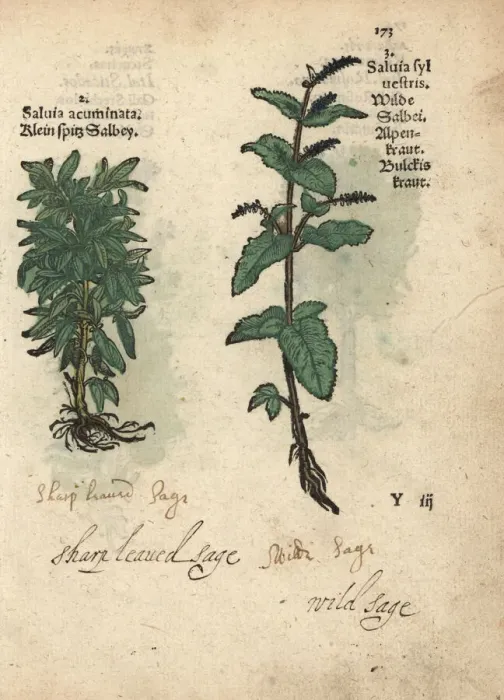 173
2.
Saluia acuminata.
Klein spitz Salbey.
3.
Saluia syl
uestris.
Wilde
Salbei.
Alpen=
kraut.
Bulckis
kraut.
Y iij
Sharp leaued Sage
sharp leaued sage
Wilde Sage
wild sage